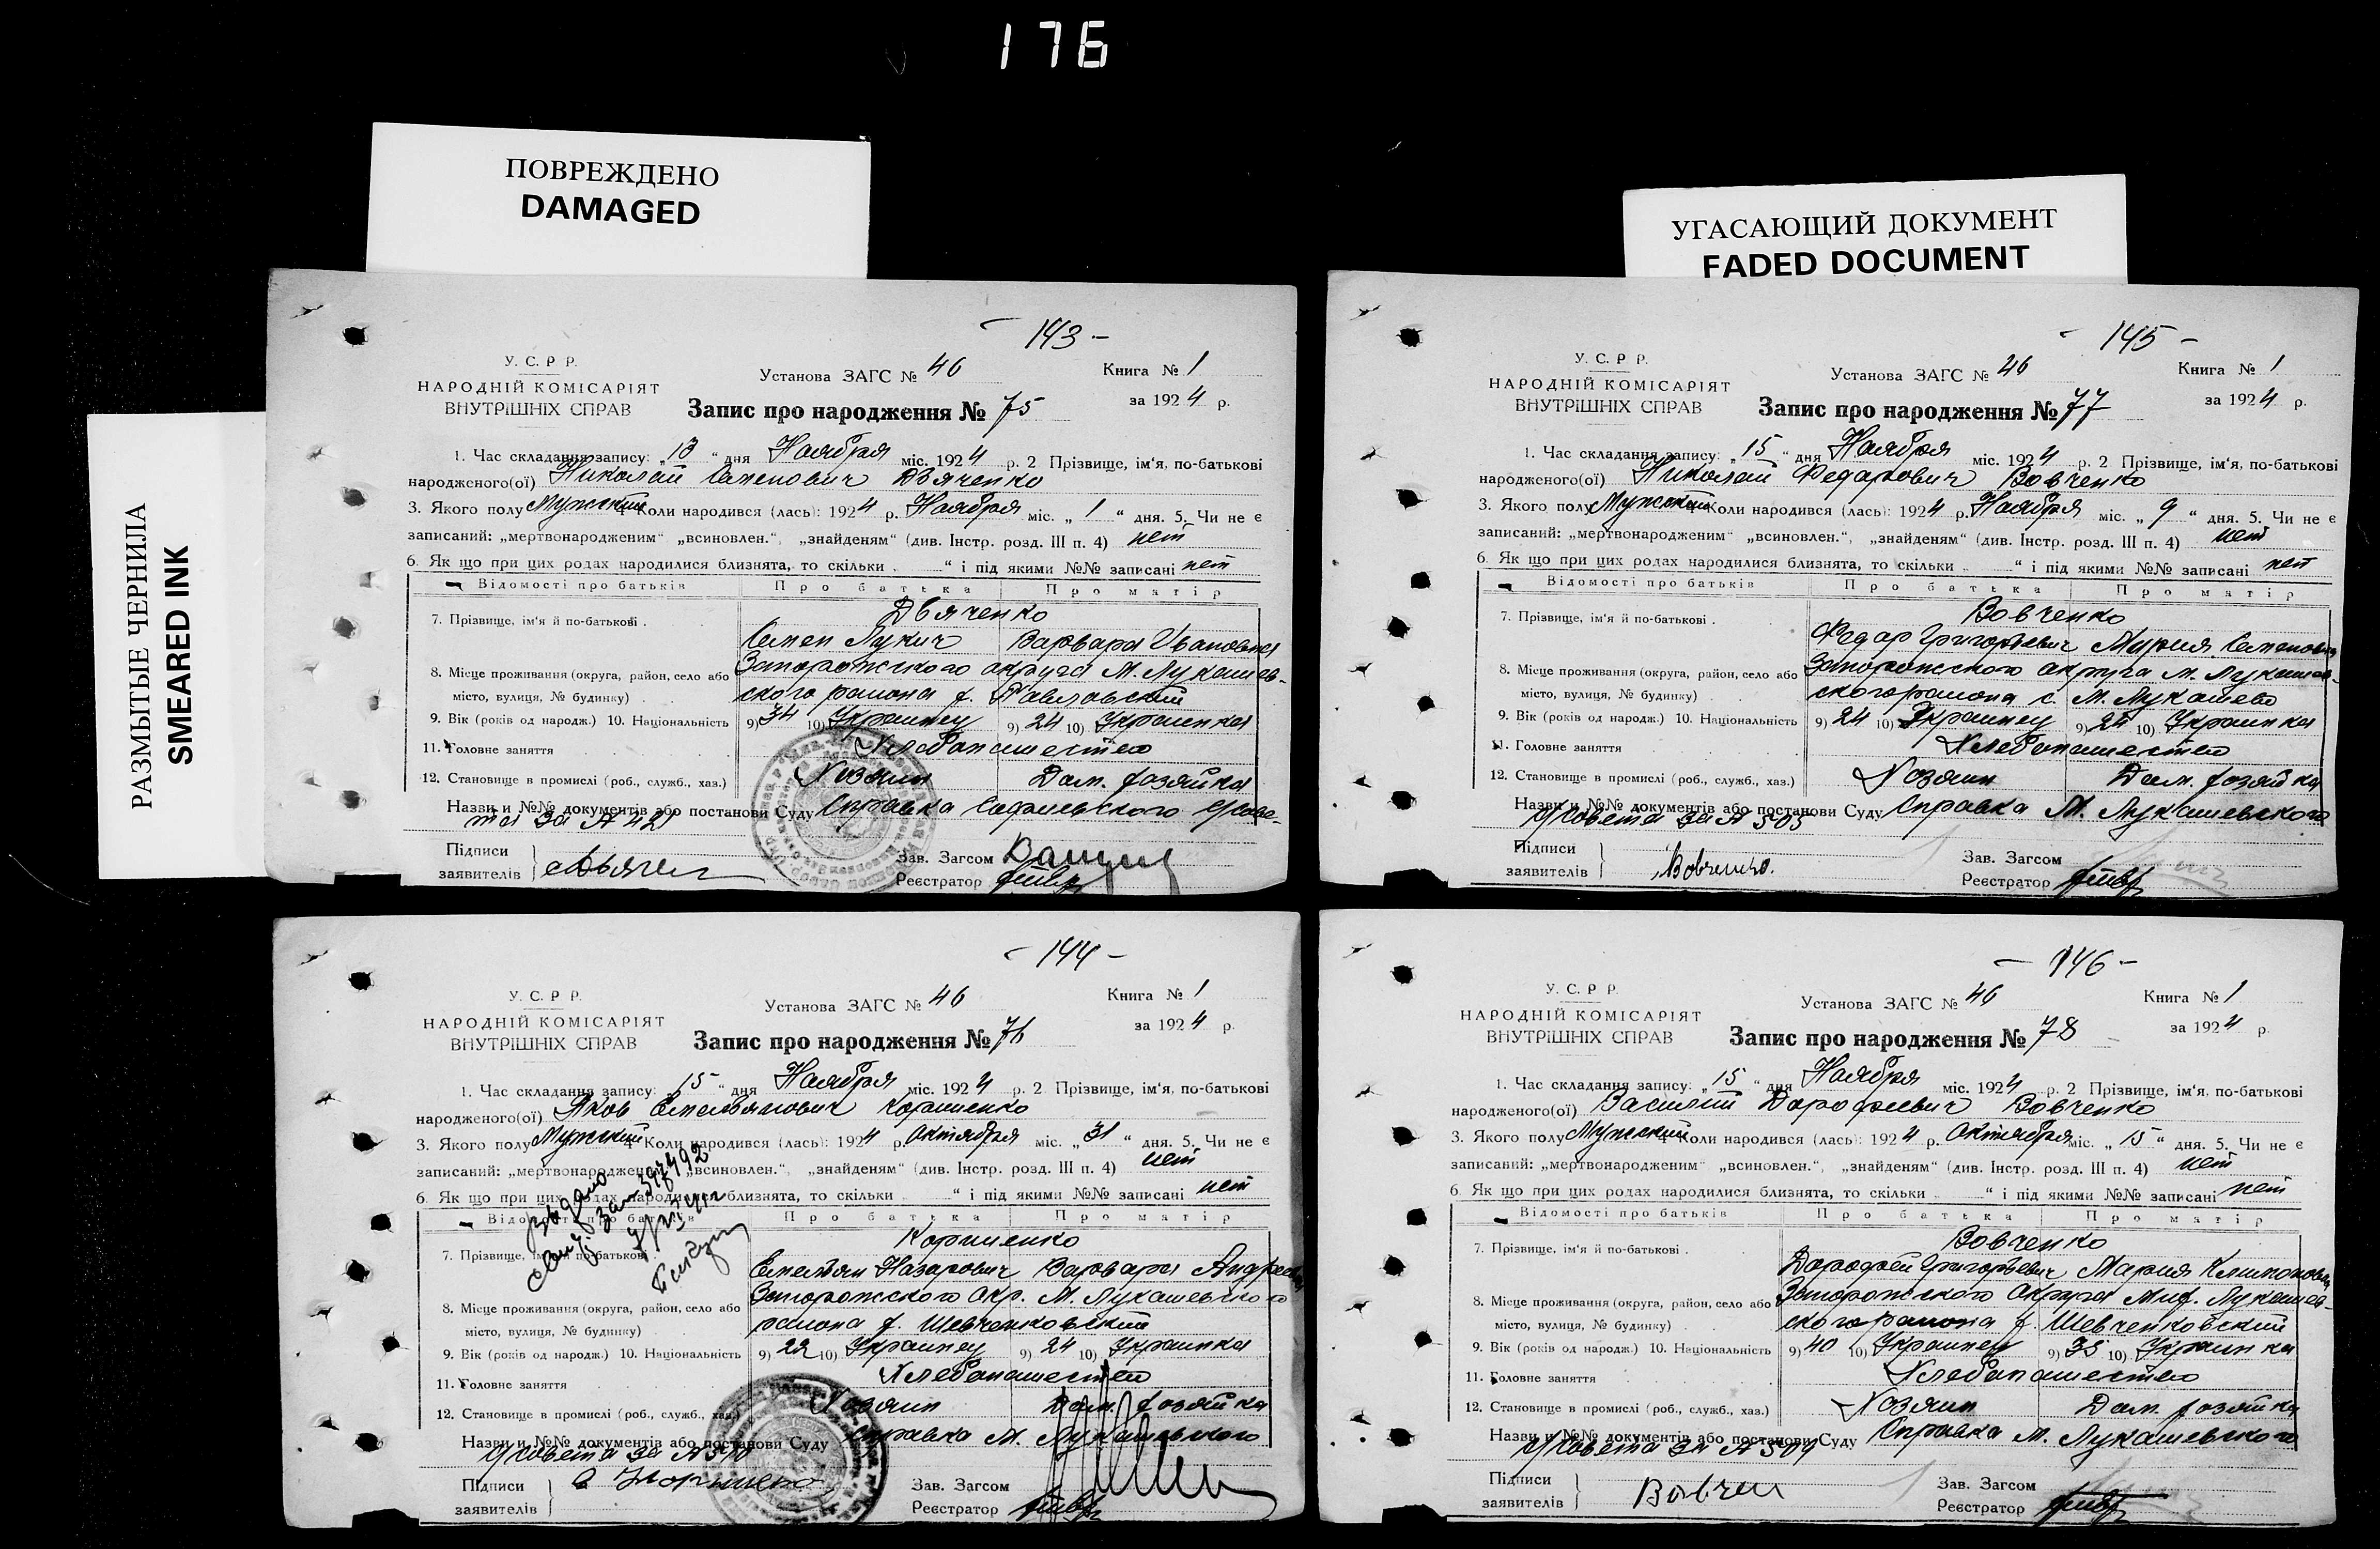 176
ПОВРЕЖДЕНО
DAMAGED
РАЗМЫТЫЕ ЧЕРНИЛА
SMEARED INK
- 143 -
У. С. Р Р.
НАРОДНІЙ КОМІСАРІЯТ
ВНУТРІШНІХ СПРАВ
Установа ЗАГС № 46
Книга № 1
за 1924 р.
Запис про народження № 75
1. Час складання запису: „13“ дня Ноября міс. 1924 р. 2 Прізвище, ім'я, по-батькові
народженого(ої) Николай Семенович Дьяченко
3. Якого полу Мужский 4. Коли народився (лась): 1924 р. Ноября міс. „1“ дня. 5. Чи не є
записаний: „мертвонародженим“ „всиновлен.“, „знайденям“ (див. Інстр. розд. III п. 4) нет
6. Як що при цих родах народилися близнята, то скільки „ “ і під якими №№ записані нет
Відомості про батьків Про батька Про матір
7. Прізвище, ім'я й по-батькові . Дьяченко
Семен Лукич Варвара Ивановна
8. Місце проживання (округа, район, село або Запорожского округа М. Лукашев-
місто, вулиця, № будинку) ского района х. Павловский
9. Вік (років од народж.) 10. Національність 9) 34 10) Украинец 9) 24 10) Украинка
11. Головне заняття Хлебопашество
12. Становище в промислі (роб., служб., хаз.) Хозяин Дом. хозяйка
Назви и №№ документів або постанови Суду Справка Софиевского с/сове-
та за № 42
Підписи
заявителів
Зав. Загсом
Реєстратор
- 144 -
У. С. Р Р.
НАРОДНІЙ КОМІСАРІЯТ
ВНУТРІШНІХ СПРАВ
Установа ЗАГС № 46
Книга № 1
за 1924 р.
Запис про народження № 76
1. Час складання запису: „15“ дня Ноября міс. 1924 р. 2 Прізвище, ім'я, по-батькові
народженого(ої) Яков Емельянович Корниенко
3. Якого полу Мужский 4. Коли народився (лась): 1924 р. Октября міс. „31“ дня. 5. Чи не є
записаний: „мертвонародженим“ „всиновлен.“, „знайденям“ (див. Інстр. розд. III п. 4) нет
6. Як що при цих родах народилися близнята, то скільки „ “ і під якими №№ записані нет
Відомості про батьків Про батька Про матір
7. Прізвище, ім'я й по-батькові . Корниенко
Емельян Назарович Варвара Андреевна
8. Місце проживання (округа, район, село або Запорожского Окр. М. Лукашевского
місто, вулиця, № будинку) района х. Шевченковский
9. Вік (років од народж.) 10. Національність 9) 22 10) Украинец 9) 24 10) Украинка
11. Головне заняття Хлебопашество
12. Становище в промислі (роб., служб., хаз.) Хозяин Дом. хозяйка
Назви и №№ документів або постанови Суду Справка М. Лукашевского
с/совета за № 510
Підписи
заявителів
Зав. Загсом
Реєстратор
УГАСАЮЩИЙ ДОКУМЕНТ
FADED DOCUMENT
- 145 -
У. С. Р Р.
НАРОДНІЙ КОМІСАРІЯТ
ВНУТРІШНІХ СПРАВ
Установа ЗАГС № 46
Книга № 1
за 1924 р.
Запис про народження № 77
1. Час складання запису: „15“ дня Ноября міс. 1924 р. 2 Прізвище, ім'я, по-батькові
народженого(ої) Николай Федорович Вовченко
3. Якого полу Мужский 4. Коли народився (лась): 1924 р. Ноября міс. „9“ дня. 5. Чи не є
записаний: „мертвонародженим“ „всиновлен.“, „знайденям“ (див. Інстр. розд. III п. 4) нет
6. Як що при цих родах народилися близнята, то скільки „ “ і під якими №№ записані нет
Відомості про батьків Про батька Про матір
7. Прізвище, ім'я й по-батькові . Вовченко
Федор Григорьевич Мария Семеновна
8. Місце проживання (округа, район, село або Запорожского округа М. Лукашев-
місто, вулиця, № будинку) ского района с. М. Лукашево
9. Вік (років од народж.) 10. Національність 9) 24 10) Украинец 9) 24 10) Украинка
11. Головне заняття Хлебопашество
12. Становище в промислі (роб., служб., хаз.) Хозяин Дом. хозяйка
Назви и №№ документів або постанови Суду Справка М. Лукашевского
с/совета за № 503
Підписи
заявителів Вовченко.
Зав. Загсом
Реєстратор
- 146 -
У. С. Р Р.
НАРОДНІЙ КОМІСАРІЯТ
ВНУТРІШНІХ СПРАВ
Установа ЗАГС № 46
Книга № 1
за 1924 р.
Запис про народження № 78
1. Час складання запису: „15“ дня Ноября міс. 1924 р. 2 Прізвище, ім'я, по-батькові
народженого(ої) Василий Дорофеевич Вовченко
3. Якого полу Мужский 4. Коли народився (лась): 1924 р. Октября міс. „15“ дня. 5. Чи не є
записаний: „мертвонародженим“ „всиновлен.“, „знайденям“ (див. Інстр. розд. III п. 4) нет
6. Як що при цих родах народилися близнята, то скільки „ “ і під якими №№ записані нет
Відомості про батьків Про батька Про матір
7. Прізвище, ім'я й по-батькові . Вовченко
Дорофей Григорьевич Мария Климоновна
8. Місце проживання (округа, район, село або Запорожского Округа Мих. Лукашев-
місто, вулиця, № будинку) ского района х. Шевченковский
9. Вік (років од народж.) 10. Національність 9) 40 10) Украинец 9) 35 10) Украинка
11. Головне заняття Хлебопашество
12. Становище в промислі (роб., служб., хаз.) Хозяин Дом. хозяйка
Назви и №№ документів або постанови Суду Справка М. Лукашевского
с/совета за № 509
Підписи
заявителів Вовчен
Зав. Загсом
Реєстратор